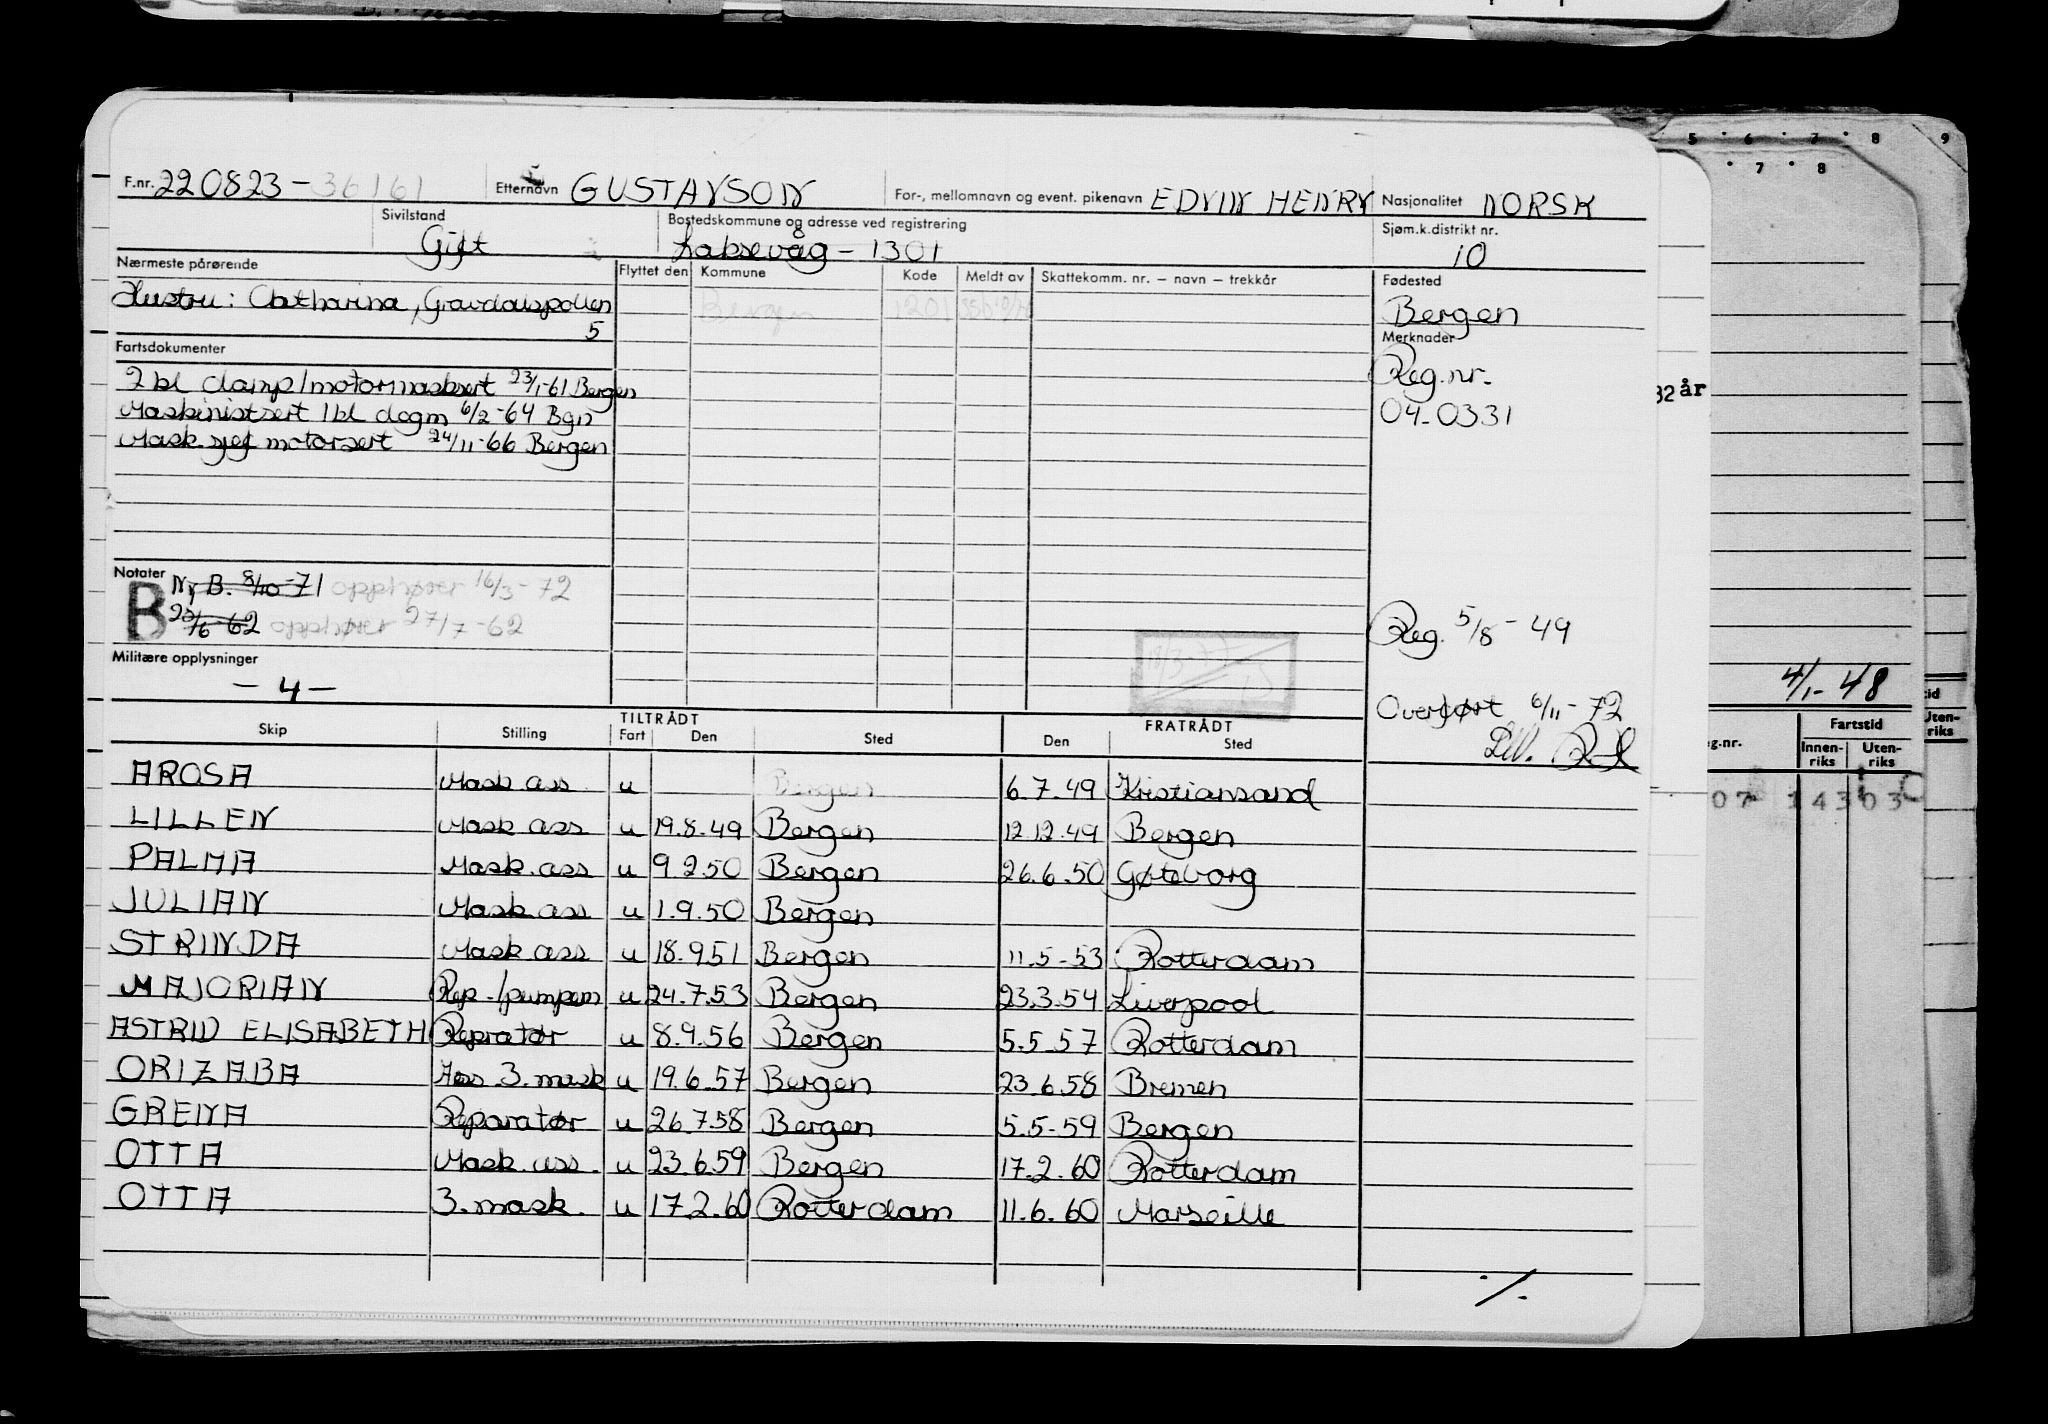 F.nr. 220823-36161 Etternavn GUSTAVSON For-, mellomnavn og event. pikenavn EDVIN HENRY Nasjonalitet NORSK
Sivilstand Gift Bostedskommune og adresse ved registrering Laksevåg - 1301 Sjøm.k.distrikt nr. 10
Nærmeste pårørende Flyttet den Kommune Kode Meldt av Skattekomm. nr. – navn – trekkår Fødested
Hustru: Chatharina, Gravdalspollen Bergen 1201 Bergen
5
Fartsdokumenter Merknader
2 kl damp/motormasksert 23/1-61 Bergen Reg.nr.
Maskinistsert 1 kl dogm 6/2-64 Bgn 04-0331
Mask sjef motorsert 24/11-66 Bergen
32 år
Notater
B Ny B. 8/10-71 opphører 16/3-72
23/6-62 opphører 27/7-62 Reg. 5/8-49
Militære opplysninger
- 4 - 4/1-48
Overført 6/11-72
TILTRÅDT FRATRÅDT
Skip Stilling Fart Den Sted Den Sted
g.nr. Fartstid Innen-riks Uten-riks
AROSA Mask ass u Bergen 6.7.49 Kristiansand
07 14303
LILLEN Mask ass u 19.8.49 Bergen 12.12.49 Bergen
PALMA Mask. ass u 9.2.50 Bergen 26.6.50 Gøteborg
JULIAN Mask ass u 1.9.50 Bergen
STRINDA Mask ass u 18.9.51 Bergen 11.5-53 Rotterdam
MAJORIAN Rep-/pumpem u 24.7.53 Bergen 23.3.54 Liverpool
ASTRID ELISABETH Repratør u 8.9.56 Bergen 5.5.57 Rotterdam
ORIZABA Ass 3.mask u 19.6.57 Bergen 23.6.58 Bremen
GRENA Reparatør u 26.7.58 Bergen 5.5-59 Bergen
OTTA Mask. ass. u 23.6.59 Bergen 17.2.60 Rotterdam
OTTA 3.mask. u 17.2.60 Rotterdam 11.6.60 Marseille
·/.